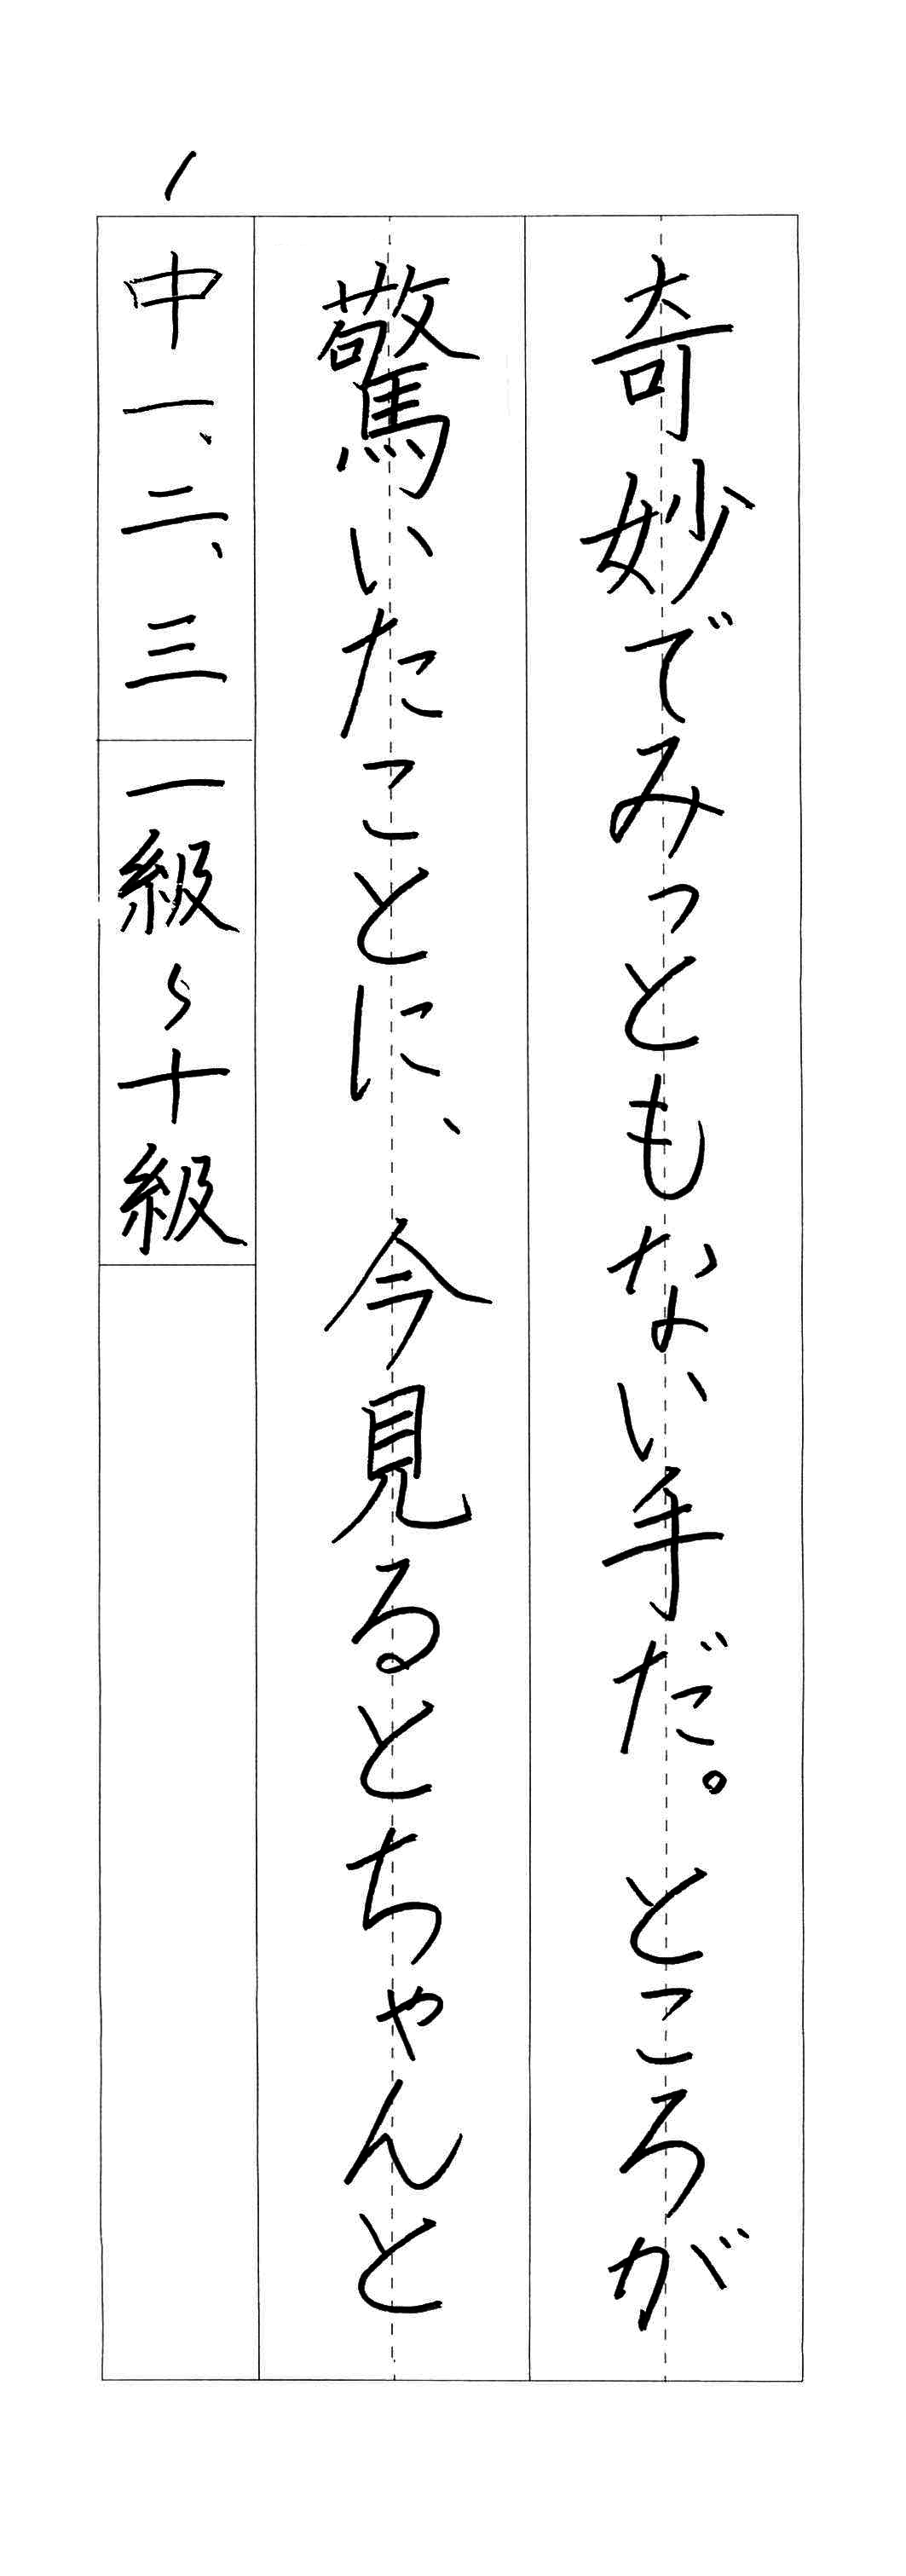 奇妙でみっともない手だ。ところが
驚いたことに、今見るとちゃんと
中一、二、三
一級〜十級